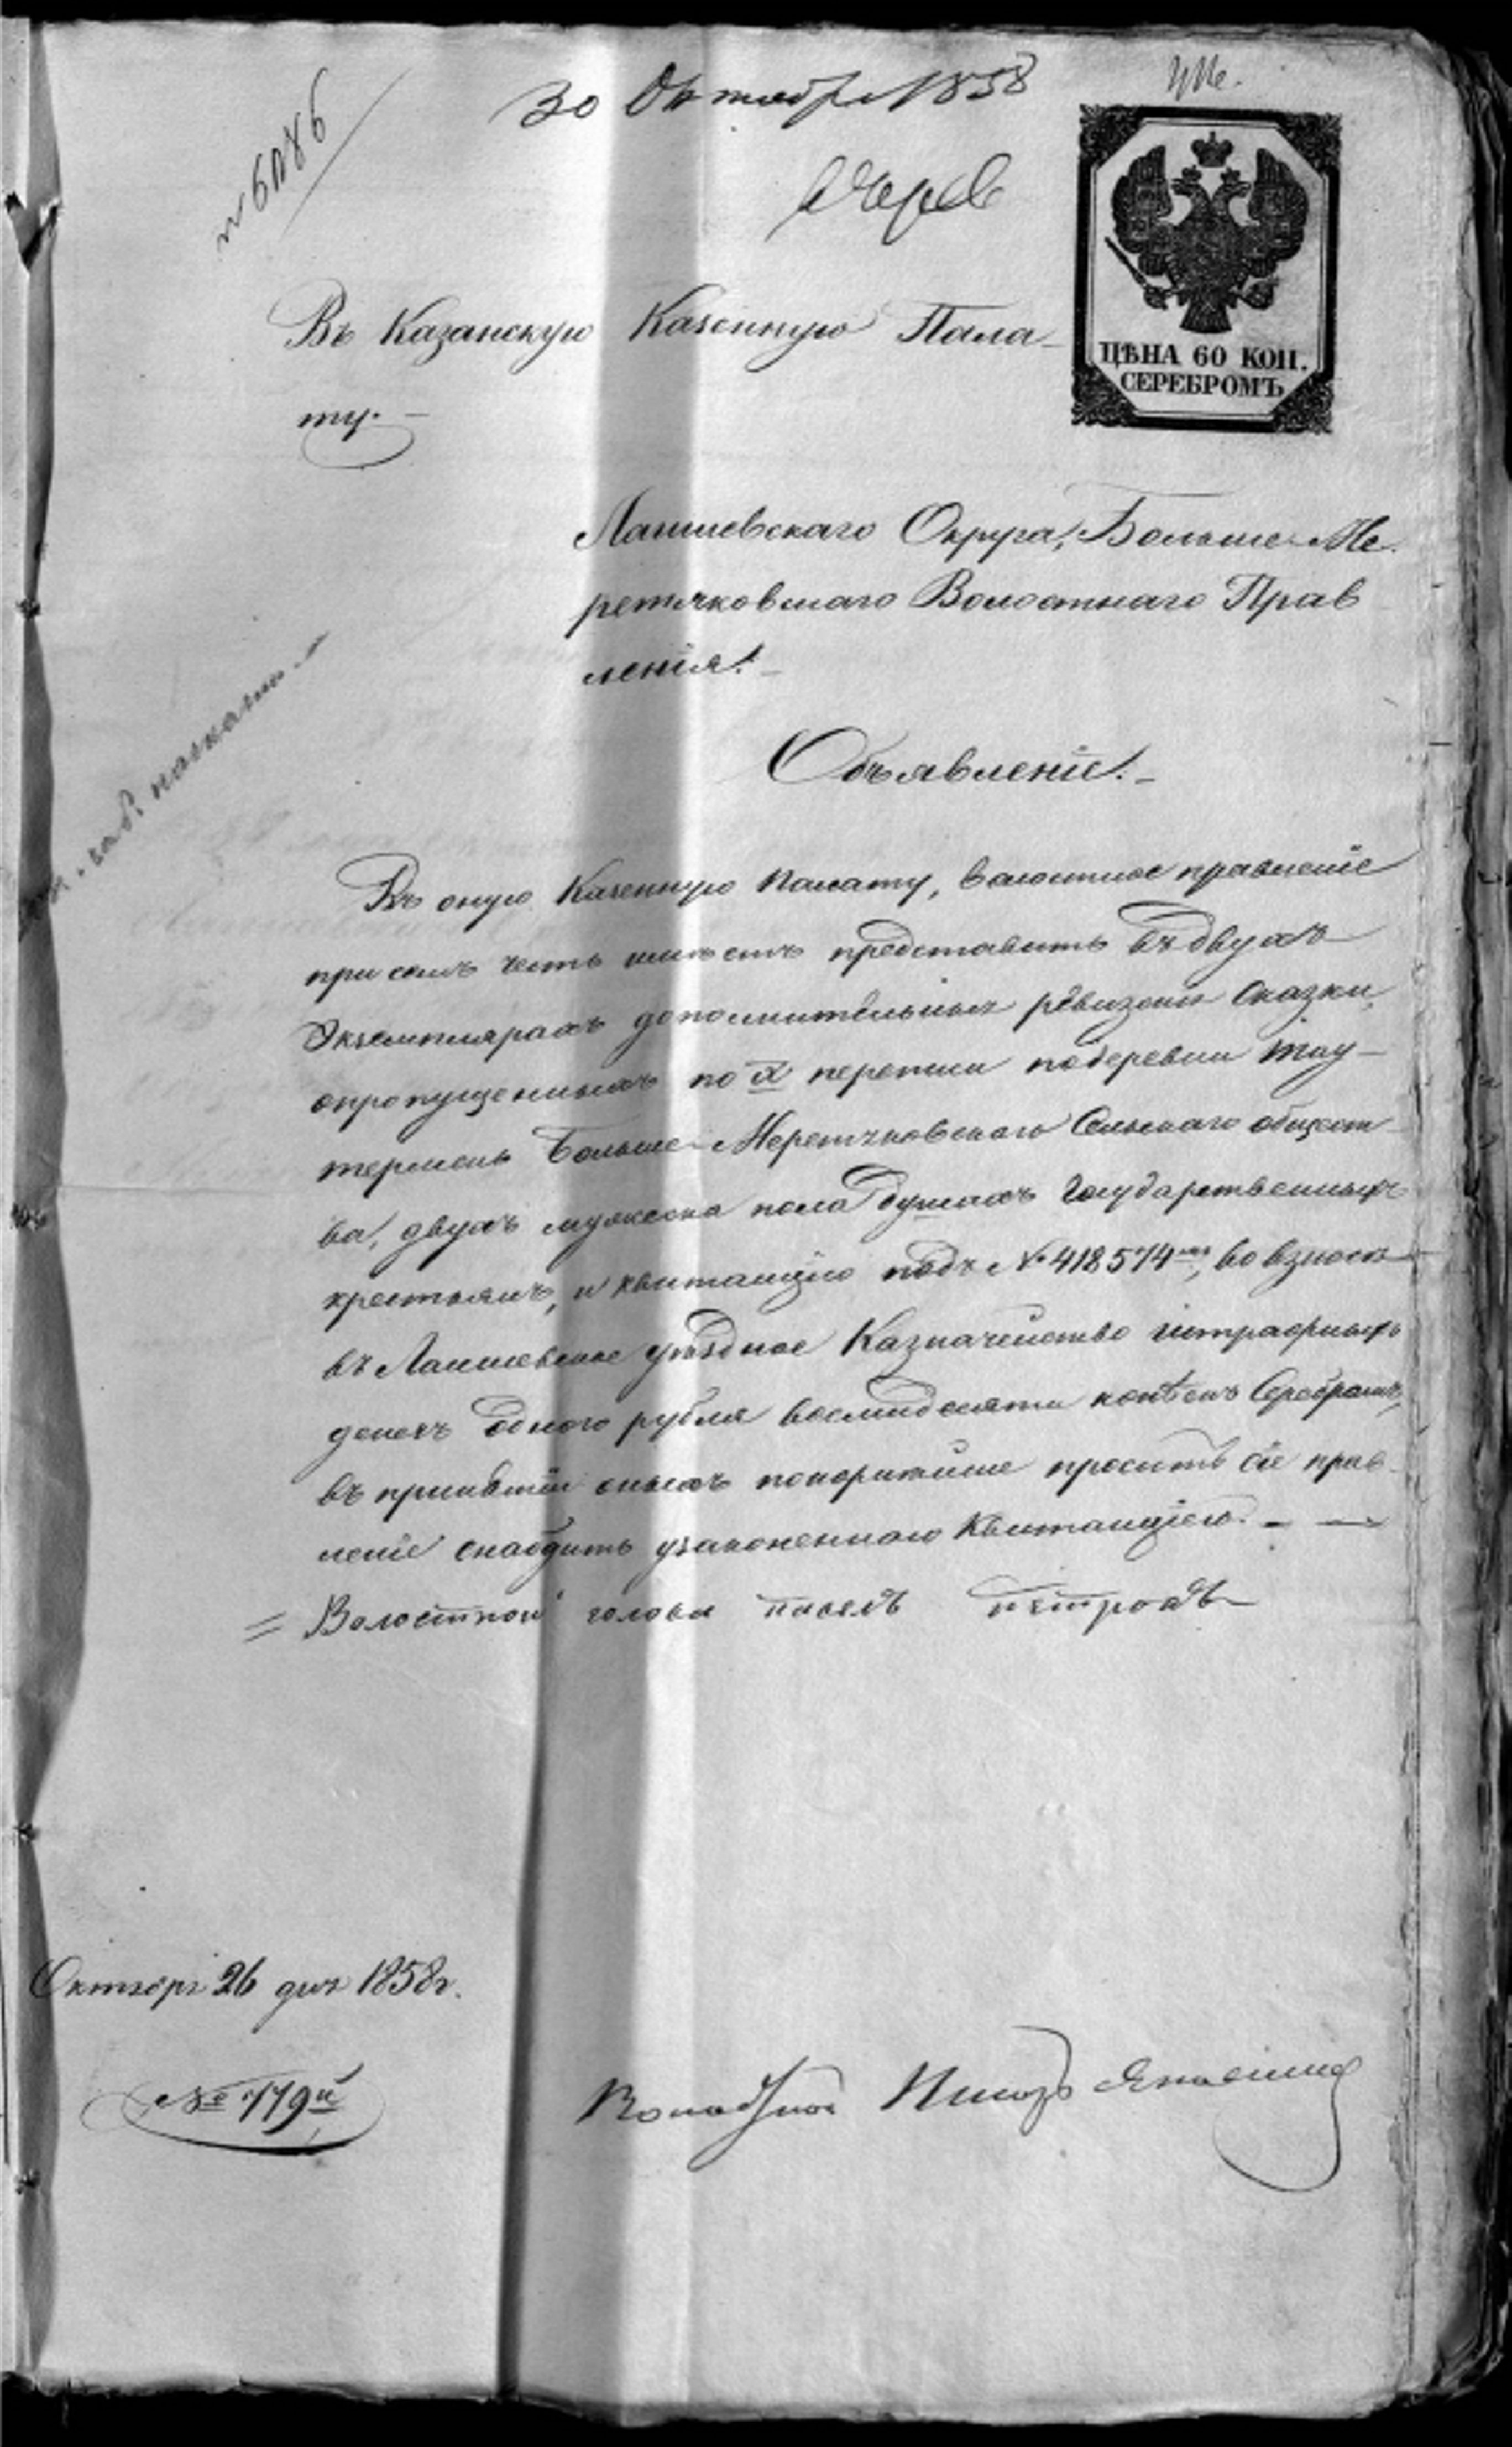 30 Октября 1858
Въ Казанскую Казенную Пала-
ту.
ЦѢНА 60 КОП.
СЕРЕБРОМЪ
Лаишевскаго Округа, Больше-Ме-
ретяковскаго Волостнаго Прав
ленія.
Объявленіе.
Въ оную Казенную Палату, волостное правленіе
при семъ честь имѣетъ представить въ двухъ
Экземплярахъ дополнительныя ревизскія Сказки,
опропущенныхъ по X переписи подеревни Тау-
термень Больше-Меретяковскаго Сельскаго общест
ва, двухъ мужеска пола душахъ Государственныхъ
крестьянъ, и квитанцію подъ № 418574, во взносѣ
въ Лаишевское уѣздное Казначейство штрафныхъ
денегъ одного рубля восмидесяти копѣекъ Серебромъ,
въ принятіи оныхъ покорнѣйше проситъ сіе прав
леніе снабдить узаконенною Квитанціею.
Волостной голова петровъ
Октября 26 дня 1858г.
№ 779й
Писарь